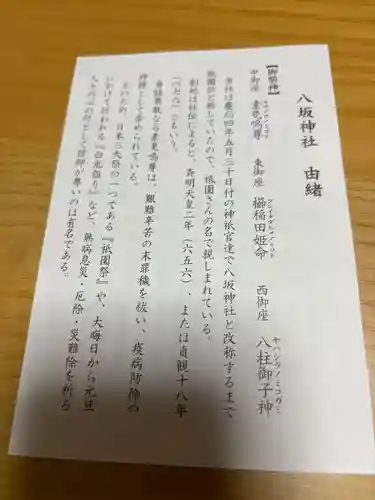 八坂神社　由緒
【御祭神】
中御座　素戔嗚尊　東御座　櫛稲田姫命　西御座　八柱御子神
クシイナダヒメノミコト　ヤハシラノミコガミ
当社は慶応四年五月三十日付の神祇官達で八坂神社と改称するまで
祇園社と称していたので、祇園さんの名で親しまれている。
創祀は社伝によると、斉明天皇二年（六五六）、または貞観十八年
（八七六）ともいう。
御祭神なる素戔嗚尊は、艱難辛苦の末罪穢を祓い、疫病防除の
神様として崇められている。
そのため、日本三大祭の一つである『祇園祭』や、大晦日から元旦
にかけて行われる『白朮詣り』など、無病息災・厄除・災難除を祈る
人々の心の灯として信仰が厚いのは有名である。